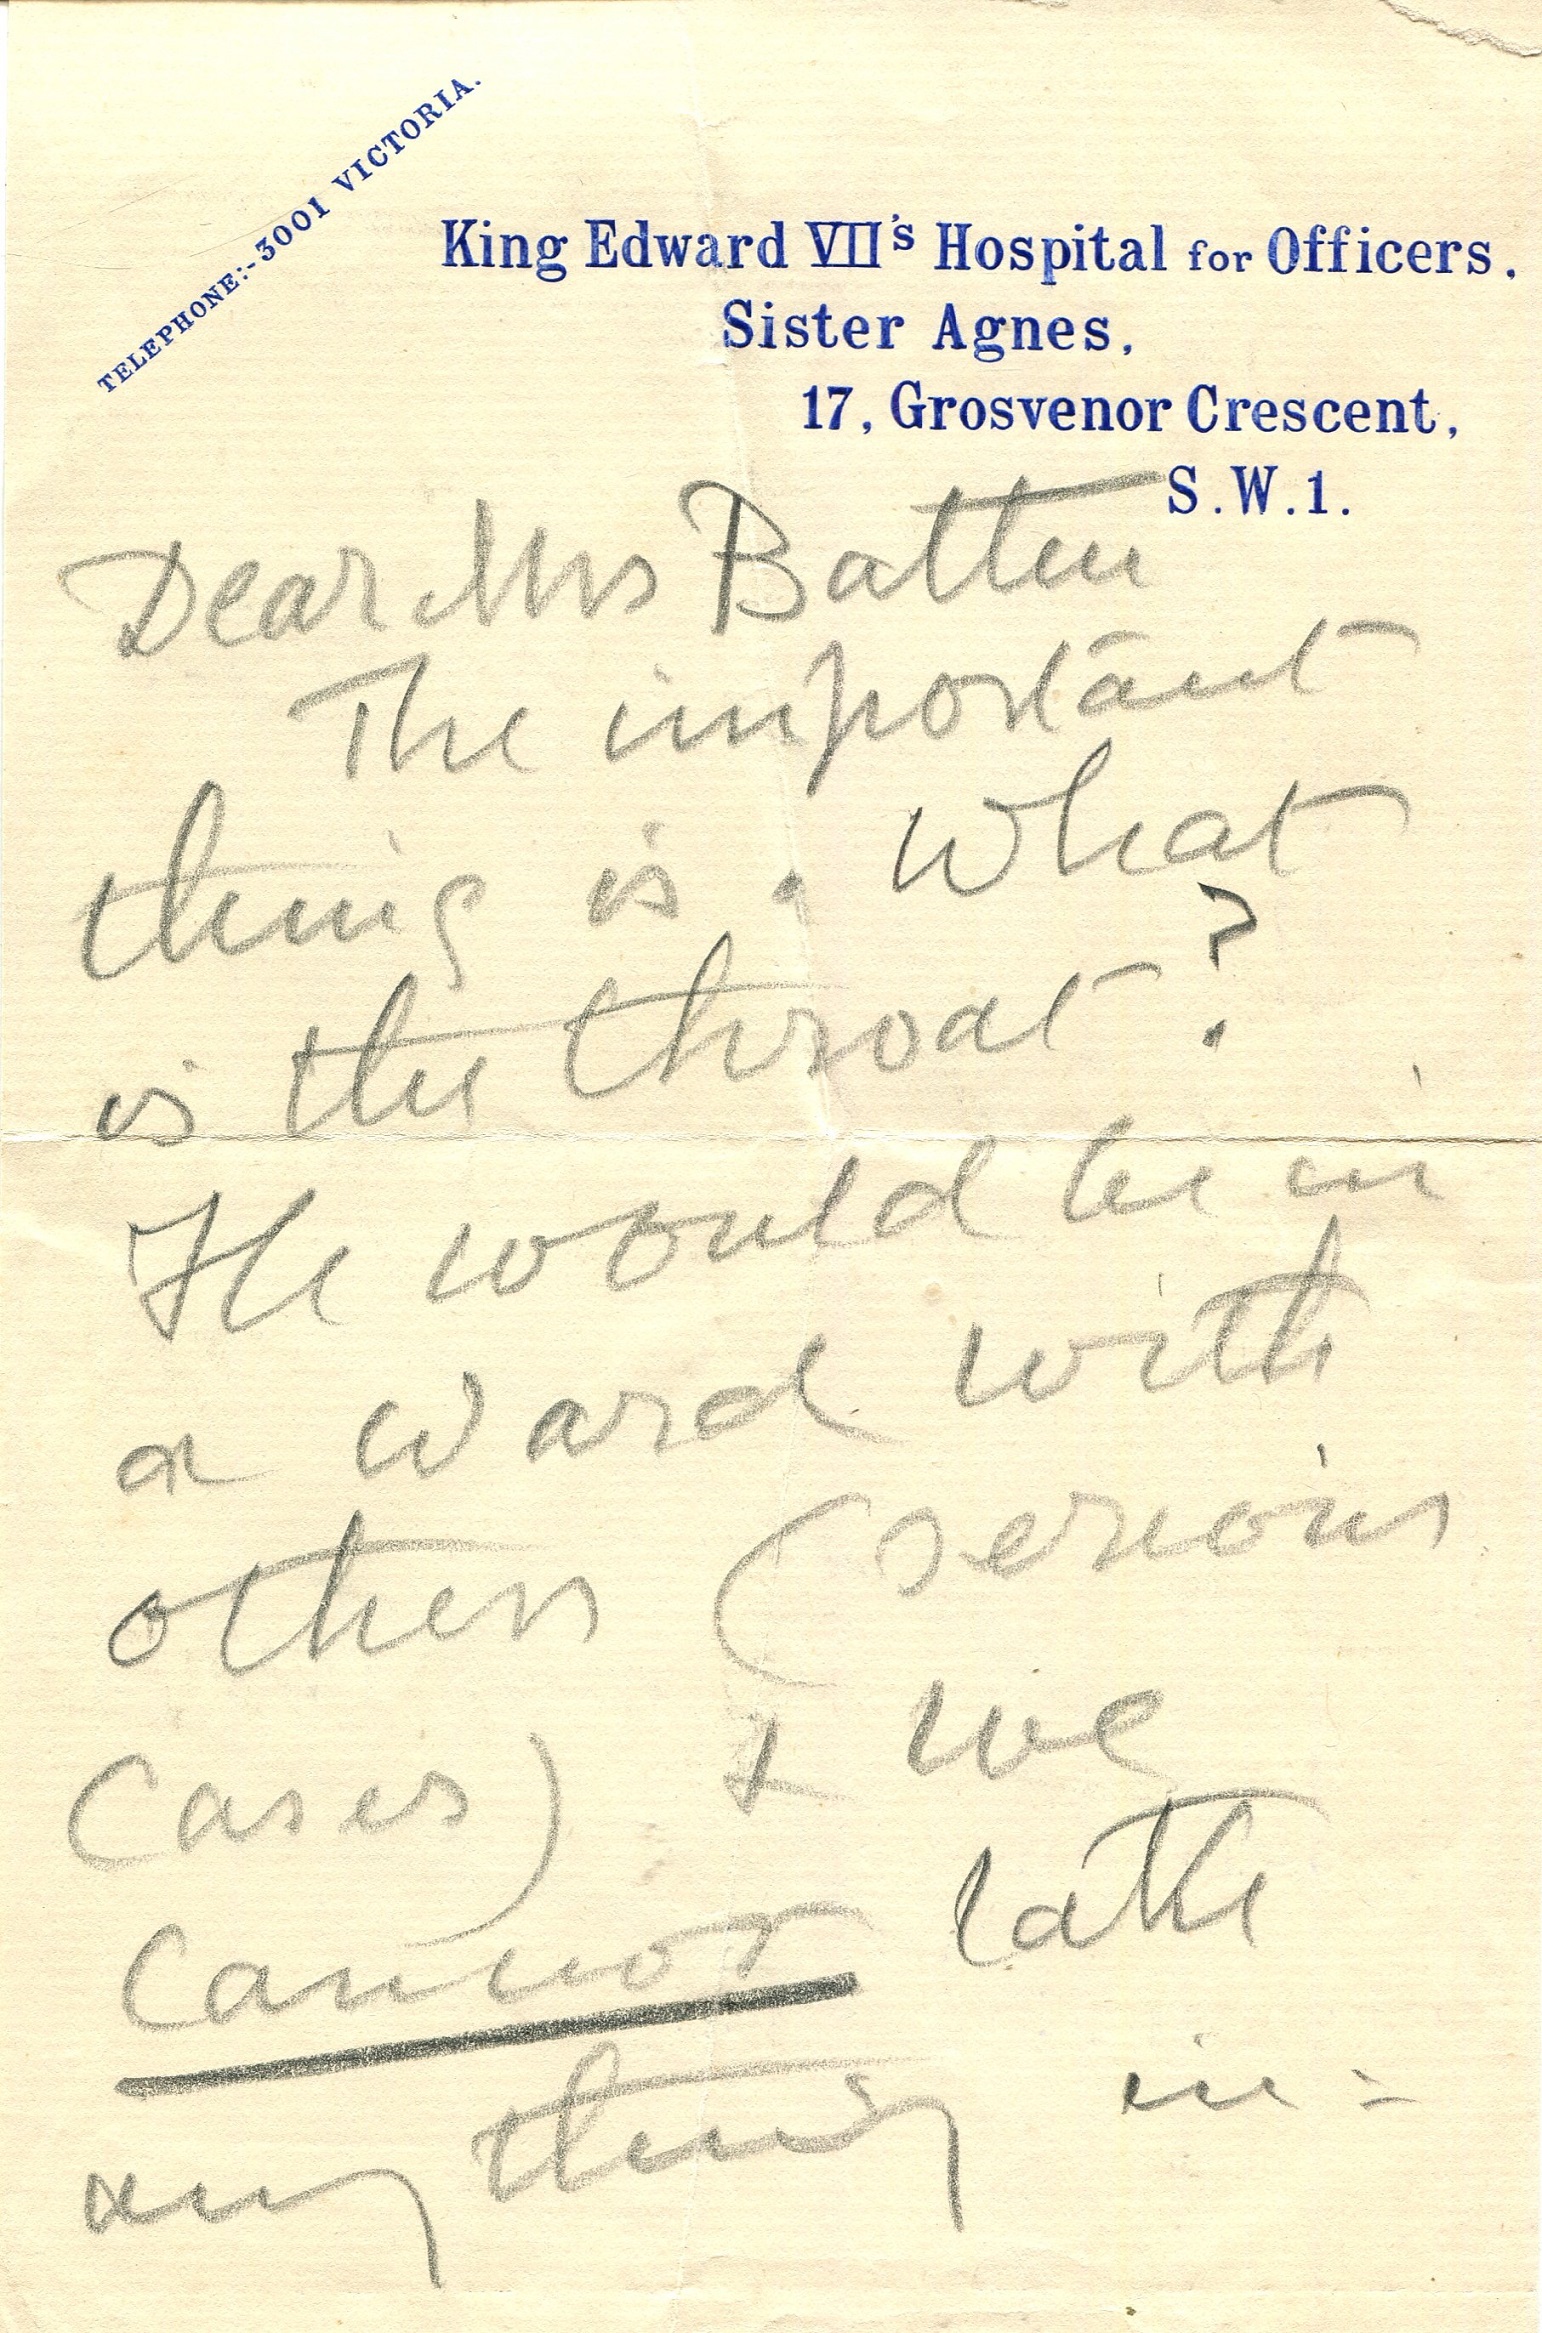 TELEPHONE:- 3001 VICTORIA.
King Edward VII's Hospital for Officers,
Sister Agnes,
17, Grosvenor Crescent,
S.W.1.
Dear Mrs Batten
The important
thing is. What
is the throat?
He would be in
a ward with
others (serious
cases) & we
cannot take
anything in=